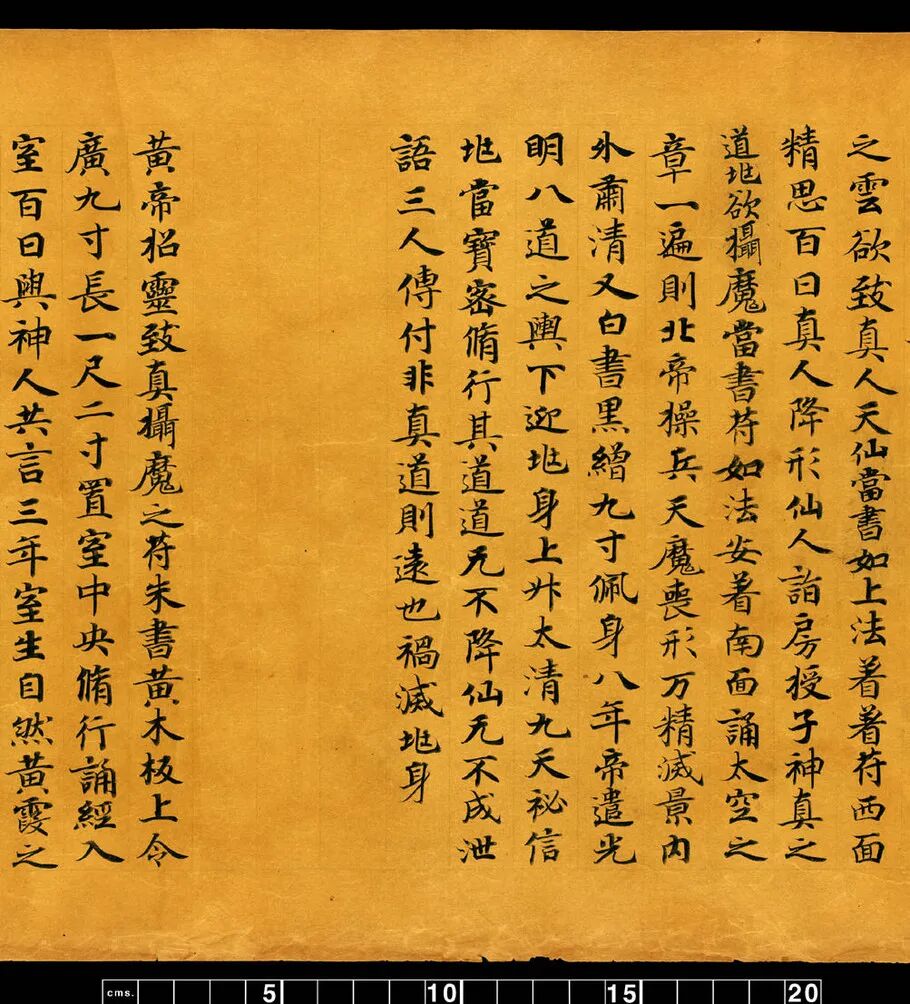 之雲欲致真人天仙當書如上法着着苻西面
精思百日真人降形仙人詣房授子神真之
道𡉵欲攝魔當書苻如法安着南面誦太空之
章一遍則北帝操兵天魔喪形万精滅景内
外肅清又白書黒繒九寸佩身八年帝遣光
明八道之輿下迎𡉵身上升太清九天祕信
𡉵當寶密脩行其道道无不降仙无不成泄
語三人傳付非真道則遠也禍滅𡉵身
黃帝招靈致真攝魔之苻朱書黃木板上令
廣九寸長一尺二寸置室中央脩行誦經入
室百日與神人共言三年室生自然黃霞之
cms. 5 10 15 20